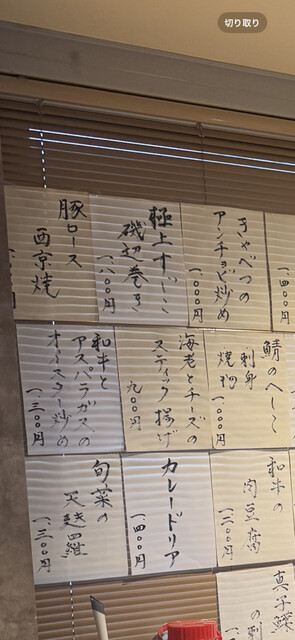 切り取り
一、四〇〇円
きゃべつの
アンチョビ炒め
一、〇〇〇円
極上すじこ
磯辺巻き
一、八〇〇円
豚ロース
西京焼
鯖のへしこ
刺身
焼物
一、〇〇〇円
海老とチーズの
スティック揚げ
九〇〇円
和牛と
アスパラガスの
オイスター炒め
一、三〇〇円
和牛の
肉豆腐
一、二〇〇円
カレードリア
一、四〇〇円
旬菜の
天麩羅
一、三〇〇円
真子鰈
の刺